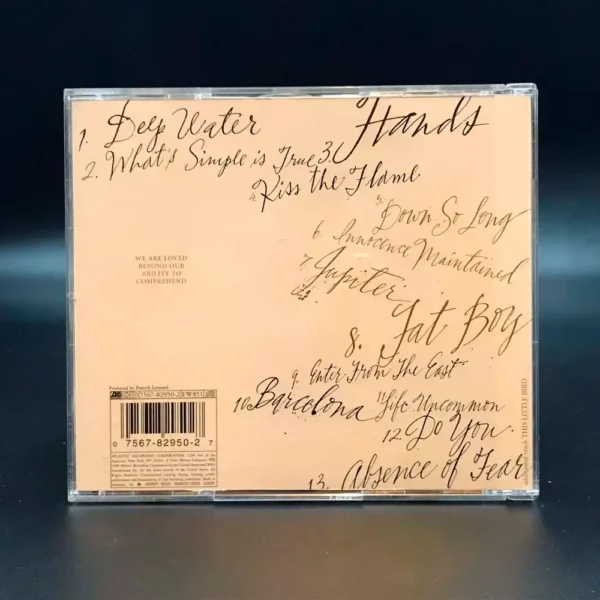 1. Deep Water
2. What's Simple is True
3. Hands
4. Kiss the Flame
5. Down So Long
6. Innocence Maintained
7. Jupiter
8. Fat Boy
9. Enter From The East
10. Barcelona
11. Life Uncommon
12. Do You
13. Absence of Fear
WE ARE LOVED
BEYOND OUR
ABILITY TO
COMPREHEND
Produced by Patrick Leonard
0 7567-82950-2 7
THIS LITTLE BIRD